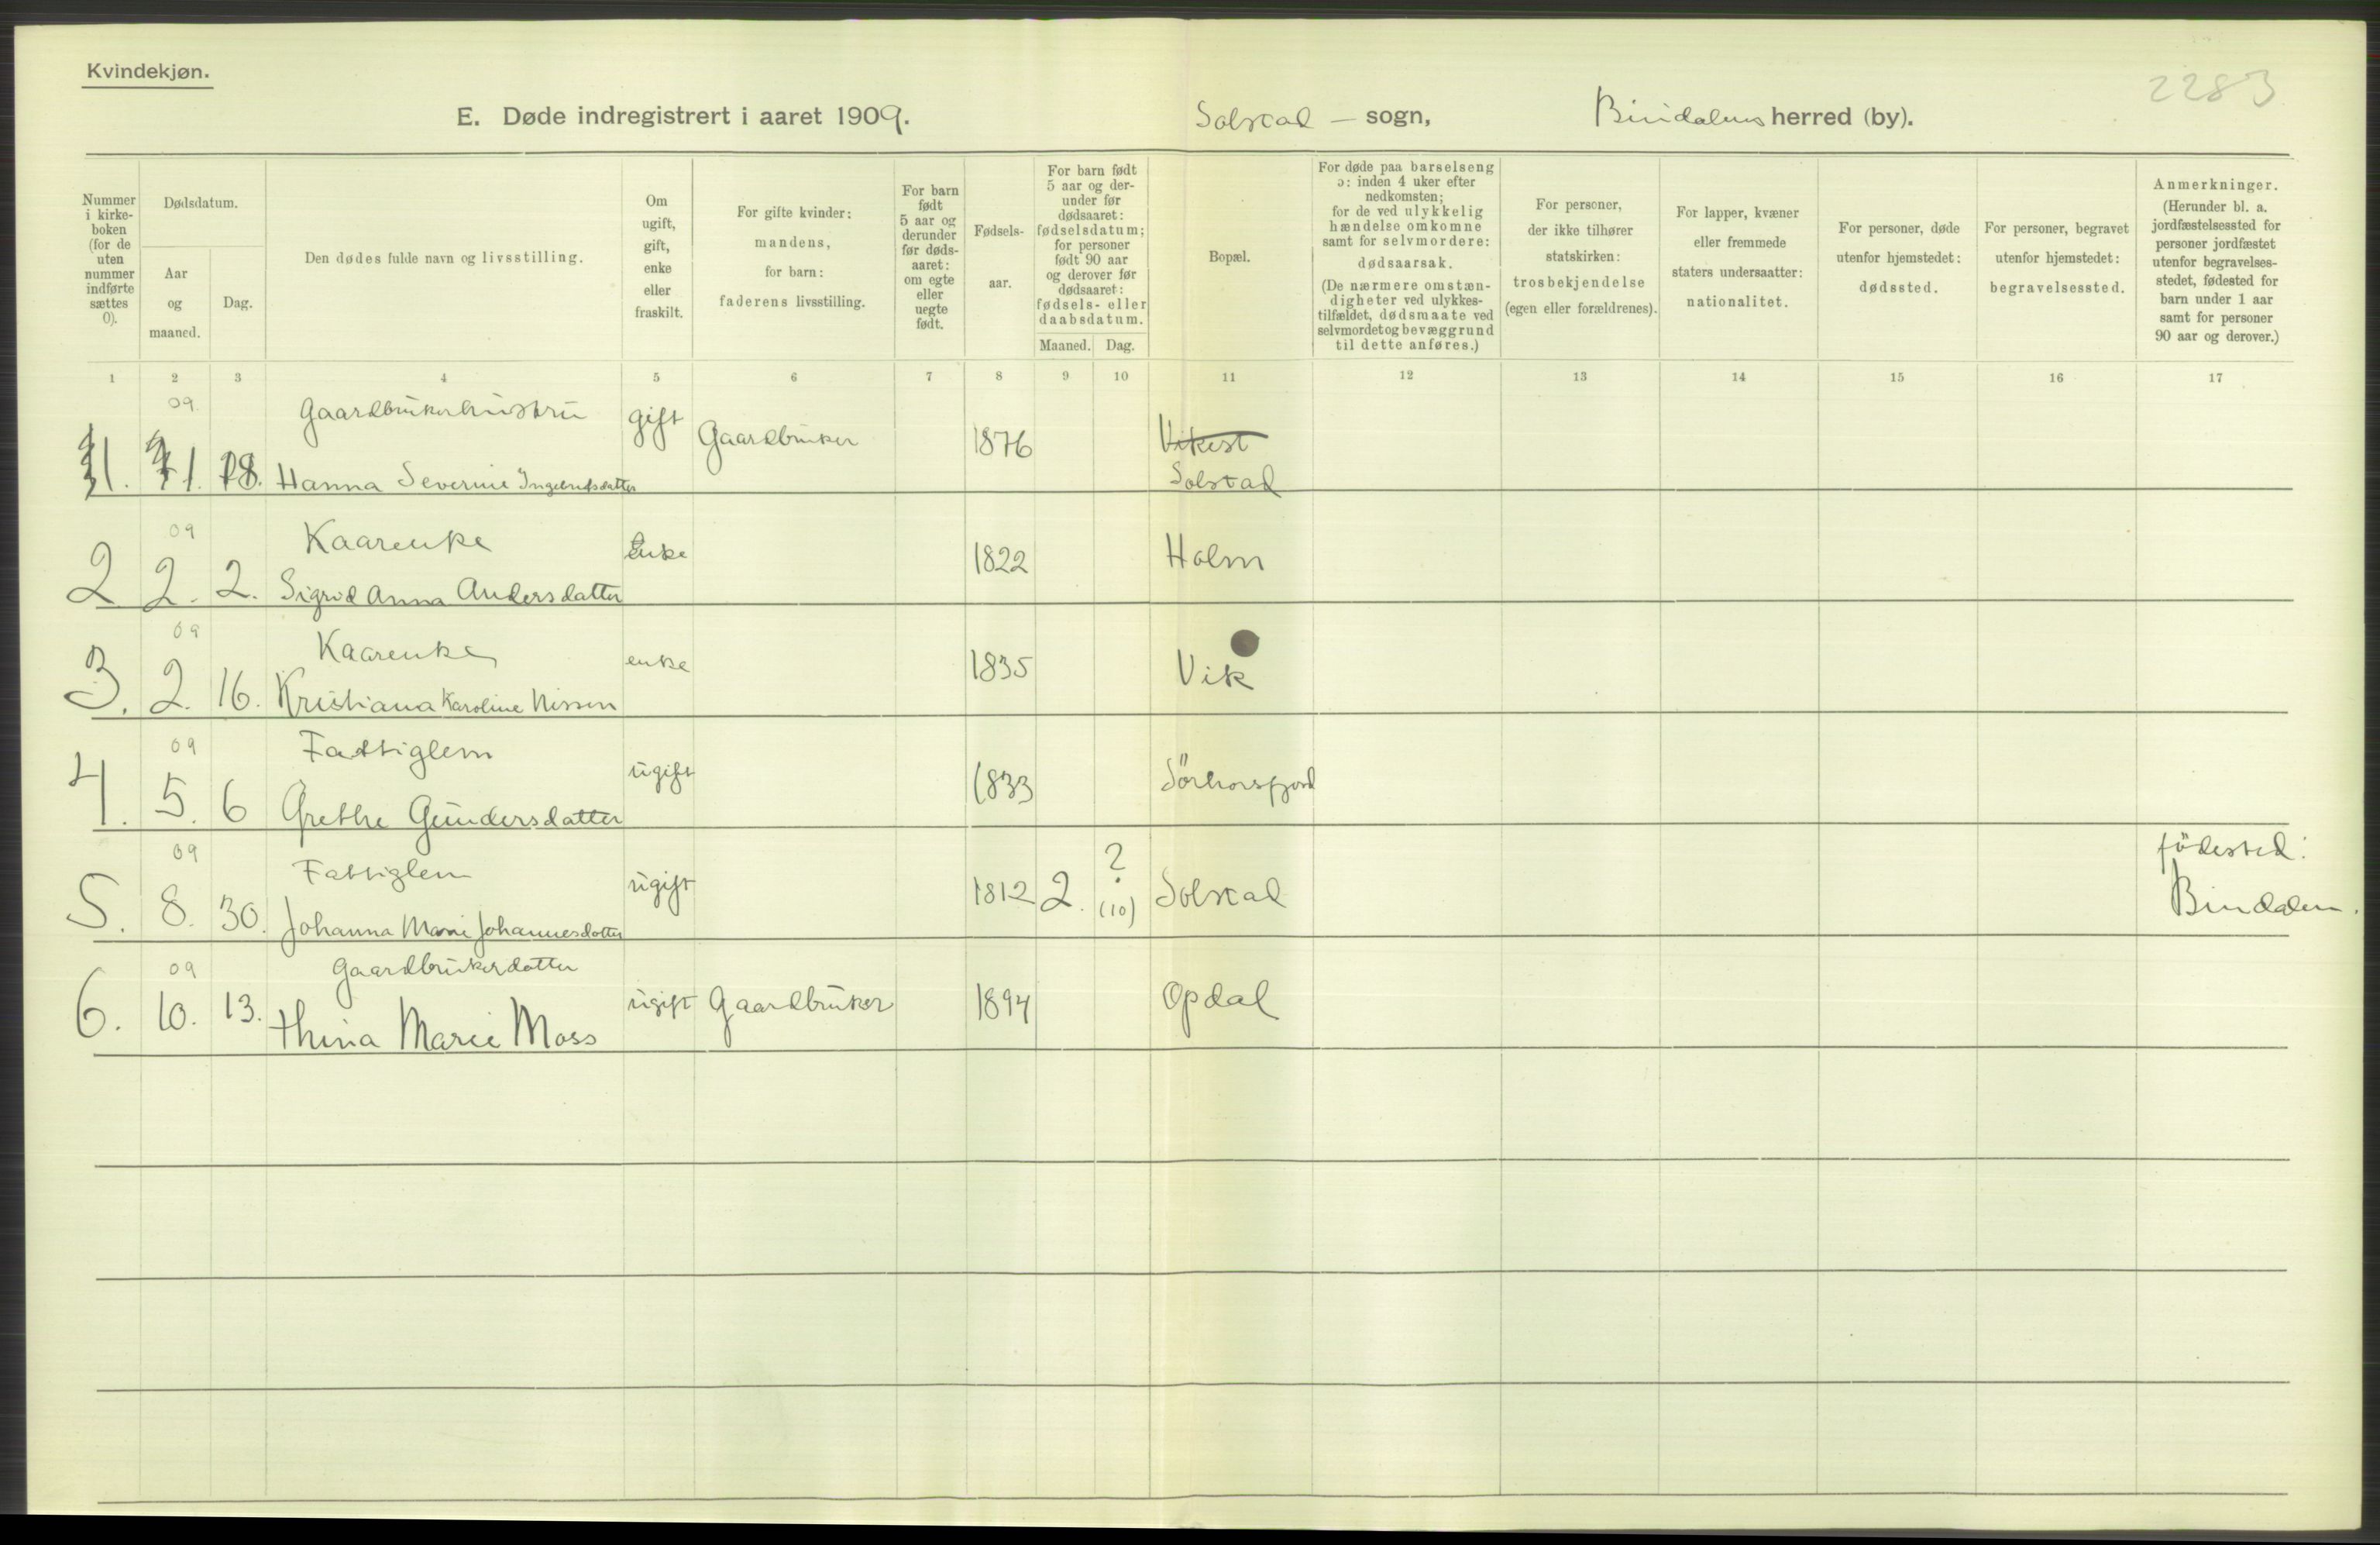 Kvindekjøn.
2283
E. Døde indregistrert i aaret 1909. Solstad — sogn, Bindalens herred (by).
Nummer i kirkeboken (for de uten nummer indførte sættes 0).
Dødsdatum.
Aar og maaned.
Dag.
Den dødes fulde navn og livsstilling.
Om ugift, gift, enke eller fraskilt.
For gifte kvinder: mandens, for barn: faderens livsstilling.
For barn født 5 aar og derunder før dødsaaret: om egte eller uegte født.
Fødselsaar.
For barn født 5 aar og derunder før dødsaaret: fødselsdatum; for personer født 90 aar og derover før dødsaaret: fødsels- eller daabsdatum.
Maaned. Dag.
Bopæl.
For døde paa barselseng ɔ: inden 4 uker efter nedkomsten; for de ved ulykkelig hændelse omkomne samt for selvmordere: dødsaarsak. (De nærmere omstændigheter ved ulykkestilfældet, dødsmaate ved selvmordet og bevæggrund til dette anføres.)
For personer, der ikke tilhører statskirken: trosbekjendelse (egen eller forældrenes).
For lapper, kvæner eller fremmede staters undersaatter: nationalitet.
For personer, døde utenfor hjemstedet: dødssted.
For personer, begravet utenfor hjemstedet: begravelsessted.
Anmerkninger. (Herunder bl. a. jordfæstelsessted for personer jordfæstet utenfor begravelsesstedet, fødested for barn under 1 aar samt for personer 90 aar og derover.)
1 2 3 4 5 6 7 8 9 10 11 12 13 14 15 16 17
09 Gaardbrukerhustru gift Gaardbruker 1876 Vikest
1. 1. 18. Hanna Severine Ingebrigtsdatter Solstad
09 Kaarenke enke 1822 Holm
2 2. 2. Sigrid Anna Andersdatter
09 Kaarenke enke 1835 Vik
3. 2. 16. Kristiana Karoline Nissen
09 Fattiglem ugift 1833 Sörhorsfjord
4. 5. 6 Grethe Gundersdatter
09 Fattiglem ugift 1812 2. ? (10) Solstad födested:
5. 8. 30. Johanna Marie Johannesdatter Bindalen.
09 Gaardbrukerdatter ugift Gaardbruker 1894 Opdal
6. 10. 13. Thina Marie Moss